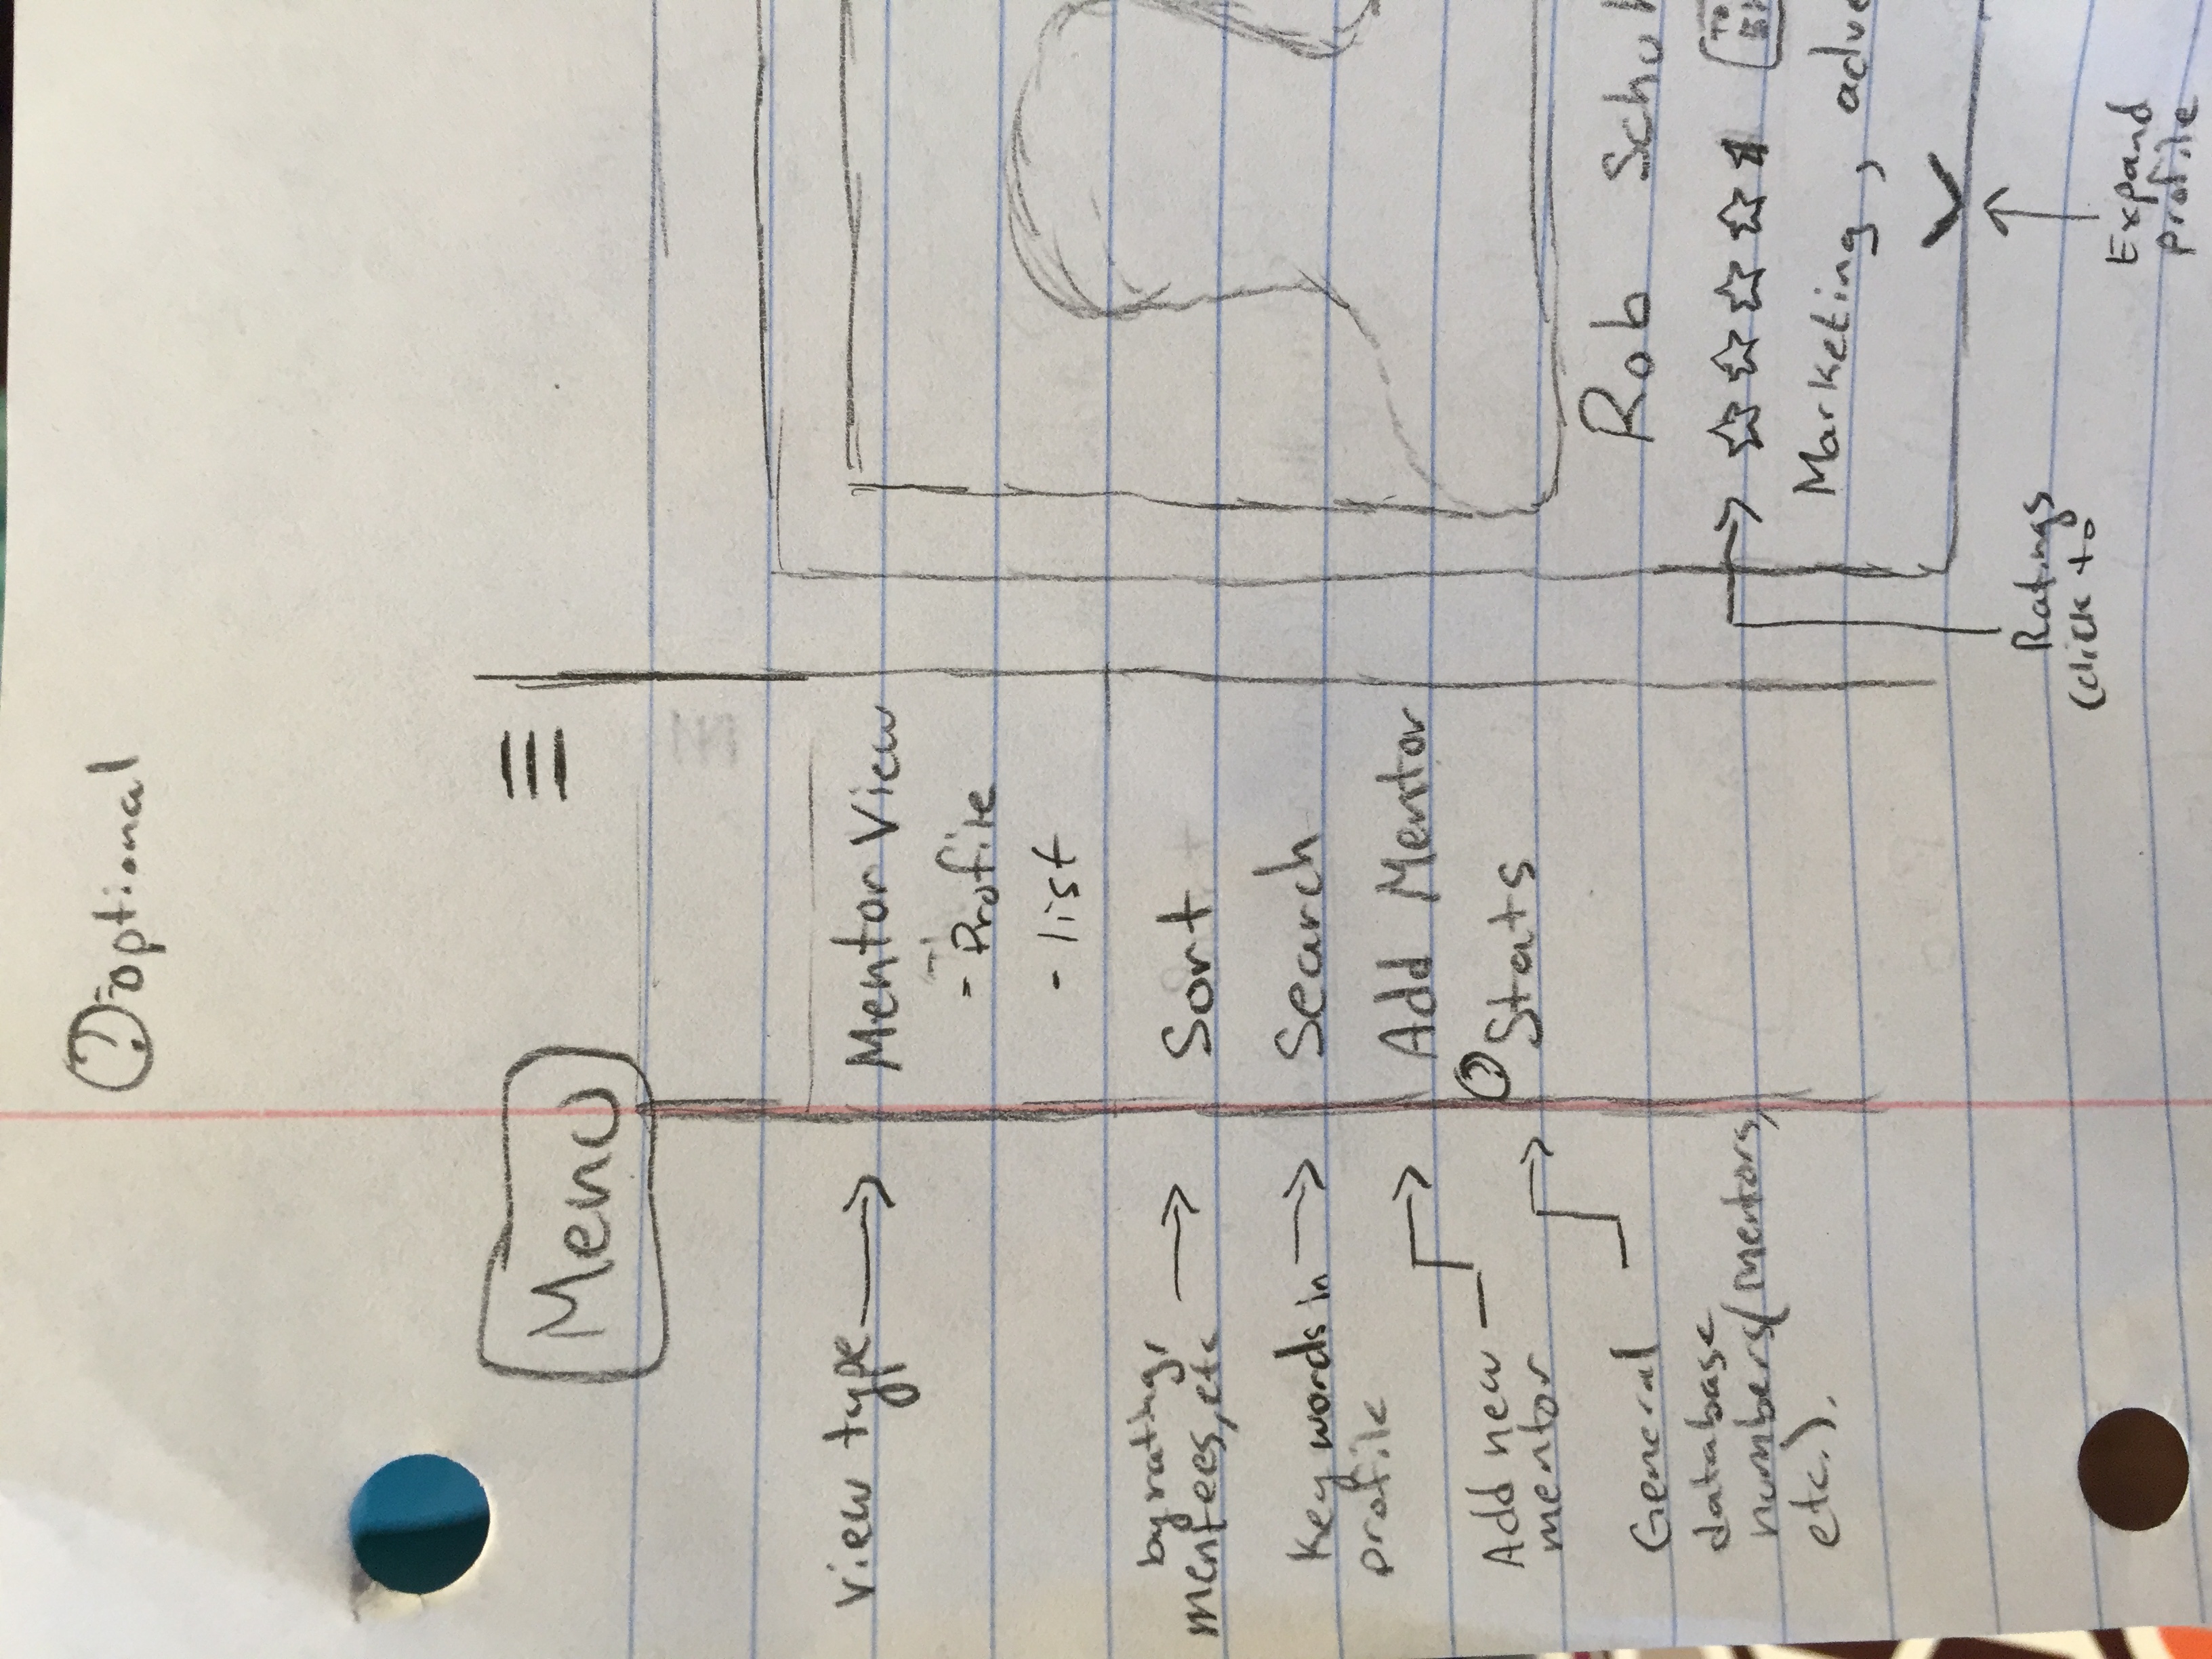 ? = optional
Menu
View type
Mentor View
- Profile
- list
by rating,
mentees, etc
Sort
Key words in
profile
Search
Add new
mentor
Add Mentor
General
database
numbers (mentors,
etc.).
? Stats
Rob
Marketing,
Ratings
(click to
Expand
profile